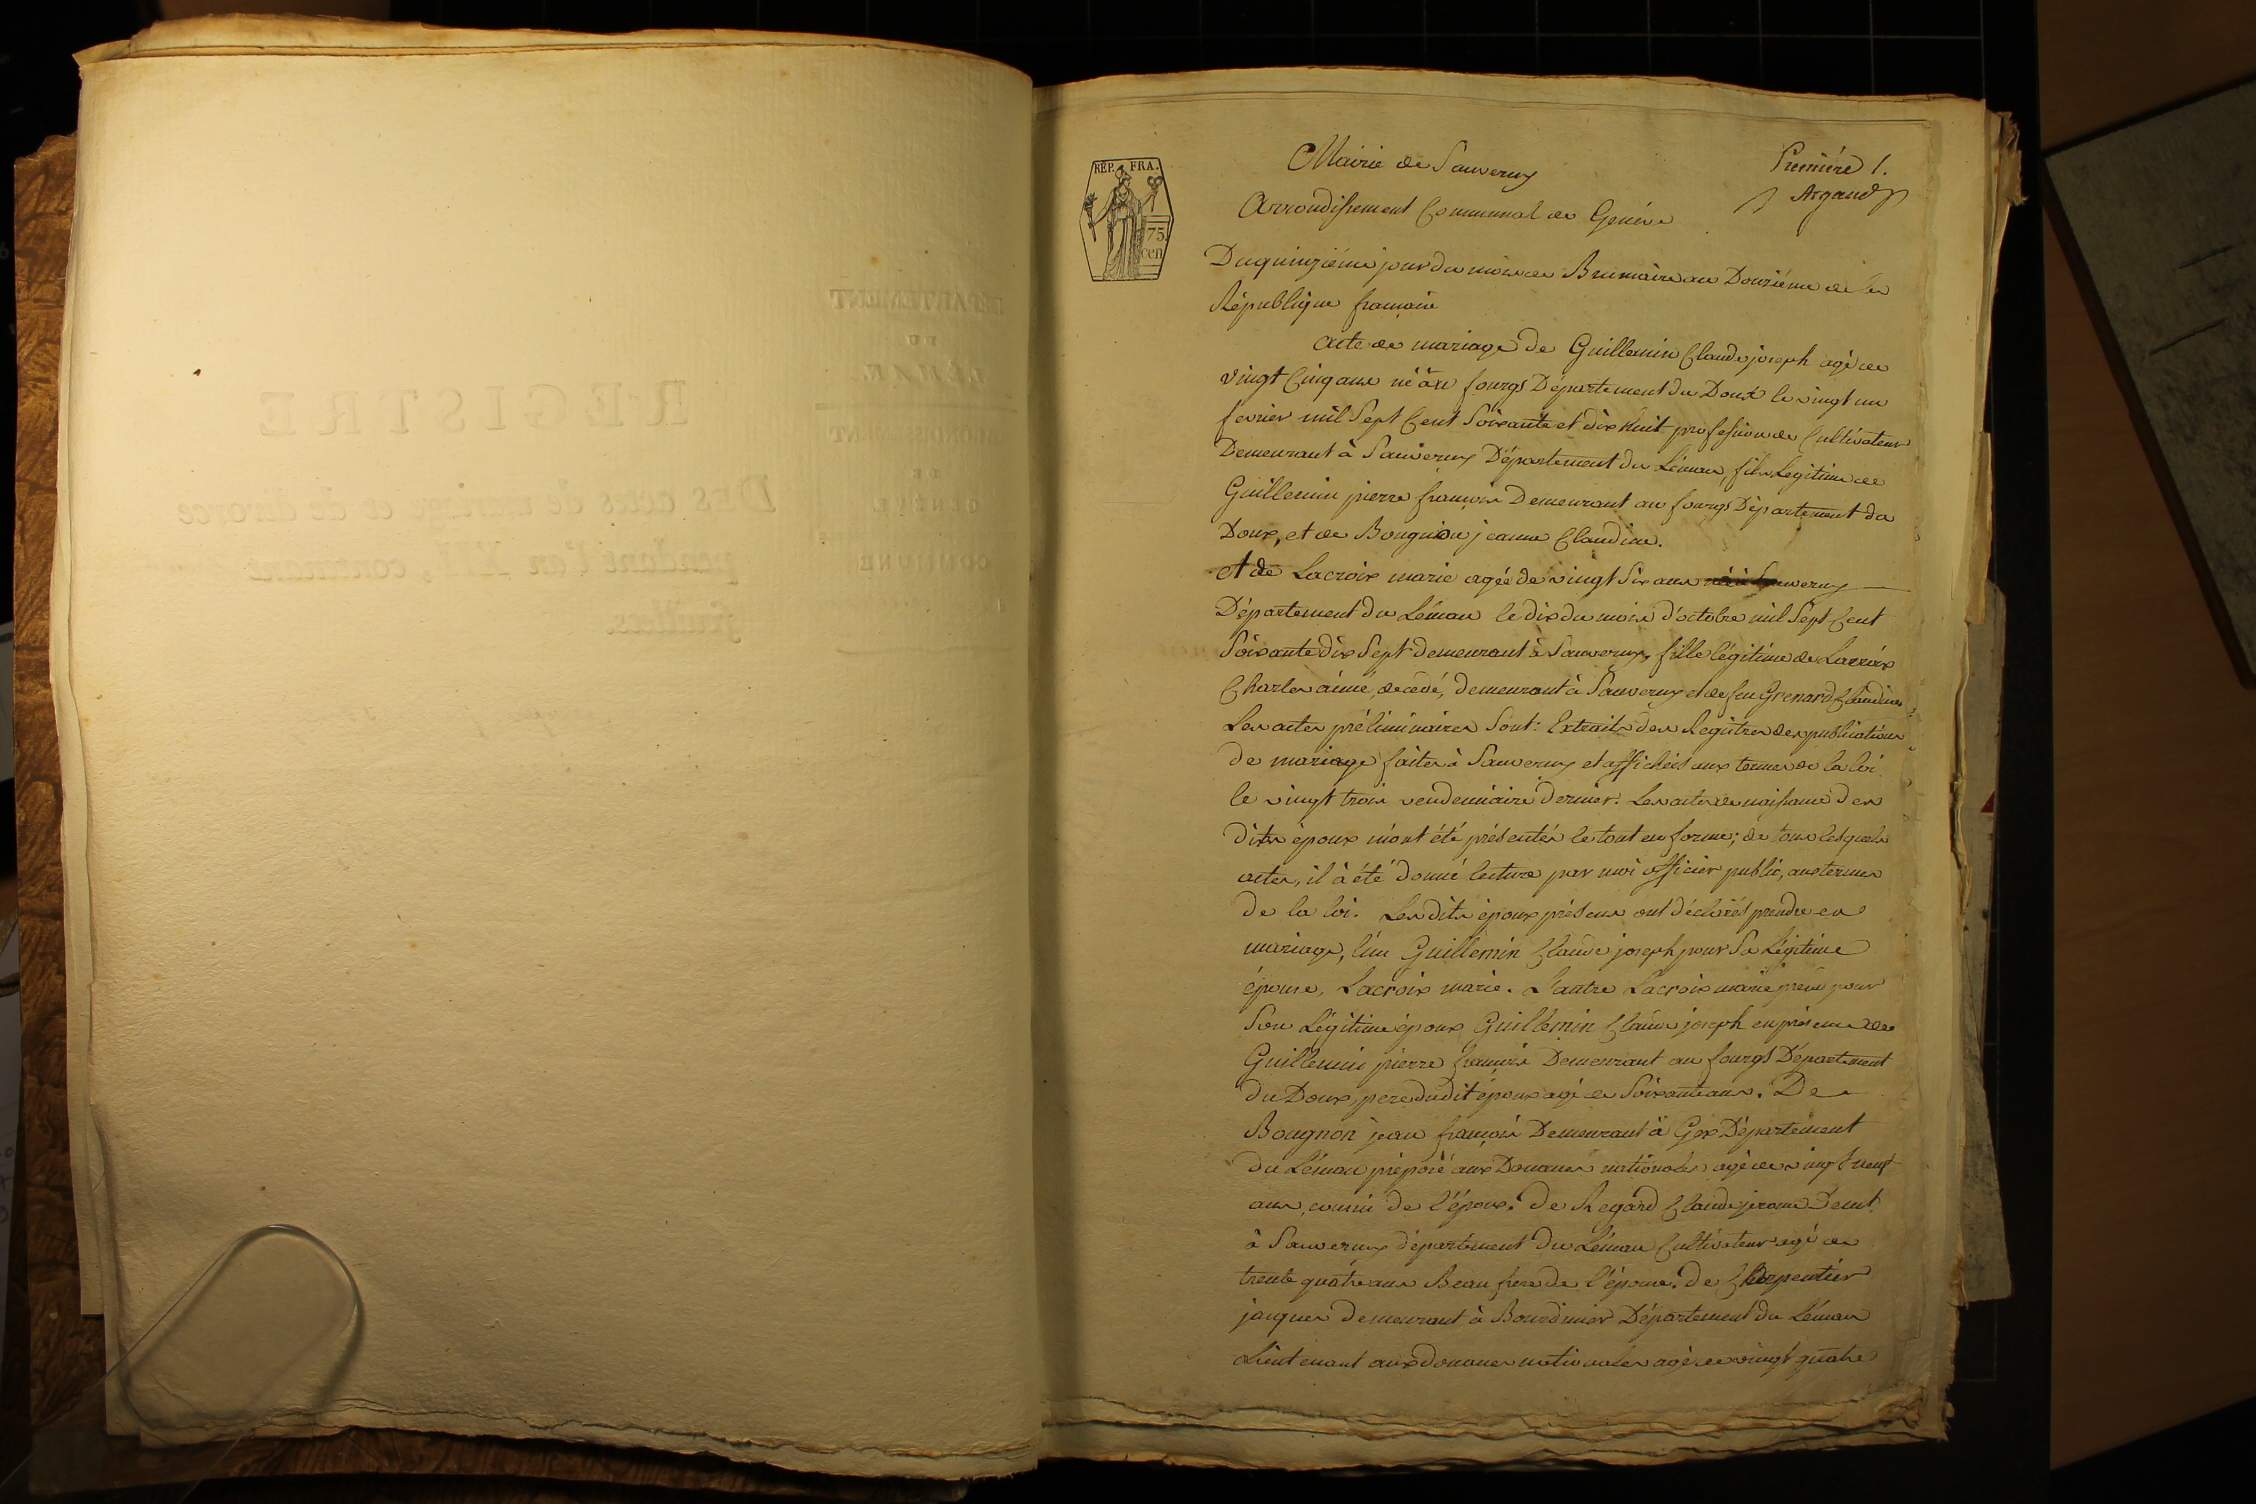 Mairie de Sauverny
Première 1.
Argand
Arrondissement Communal de Genève
RÉP. FRA.
75.
cen
Du quinzième jour du mois de Brumaire an Douzième de la
République française
Acte de mariage de Guillemin Claude joseph agé de
vingt Cinq ans né aux fourgs Département du Doux le vingt un
fevrier mil Sept Cent Soixante et dix huit profession de Cultivateur
Demeurant à Sauverny Département du Léman, fils Legitime de
Guillemin pierre françois Demeurant au fourgs Département du
Doux, et de Bougnion jeanne Claudine.
et de Lacroix marie agée de vingt Six ans née à Sauverny
Département du Léman le dix du mois d'octobre mil Sept Cent
Soixante dix Sept demeurant à Sauverny, fille légitime de Lacroix
Charles aimé, décédé, demeurant à Sauverny et de feu Grenard Claudine
Les actes préliminaires Sont: Extraits des Registres des publications
de mariage faites à Sauverny et affichées aux termes de la loi
le vingt trois vendemiaire dernier. Les actes de naissance des
dits époux m'ont été présentés le tout en forme; de tous lesquels
actes, il à été donné lecture par moi officier public, aux termes
de la loi. Les dits époux présens ont déclarés prendre en
mariage, l'un Guillemin Claude joseph pour Sa Légitime
épouse, Lacroix marie. L'autre Lacroix marie prend pour
Son Légitime époux Guillemin Claude joseph en présence de
Guillemin pierre françois Demeurant au fourgs Département
du Doux, pere dudit époux agé de Soixante ans. De
Bougnon jean françois Demeurant à Gex Département
du Léman préposé aux Douanes nationales agé de vingt neuf
ans, cousin de l'époux. de Regard Claude jerome Demt.
à Sauverny département du Léman Cultivateur agé de
trente quatre ans Beau frere de l'épouse. de Charpentier
jacques demeurant à Bourdinier Département du Léman
Lieutenant aux douanes nationales agé de vingt quatre
REGISTRE
DES actes de mariage et de divorce
pendant l'an XII, contenant
feuillets.
DÉPARTEMENT
DU
LÉMAN.
DE
GENÈVE.
COMMUNE